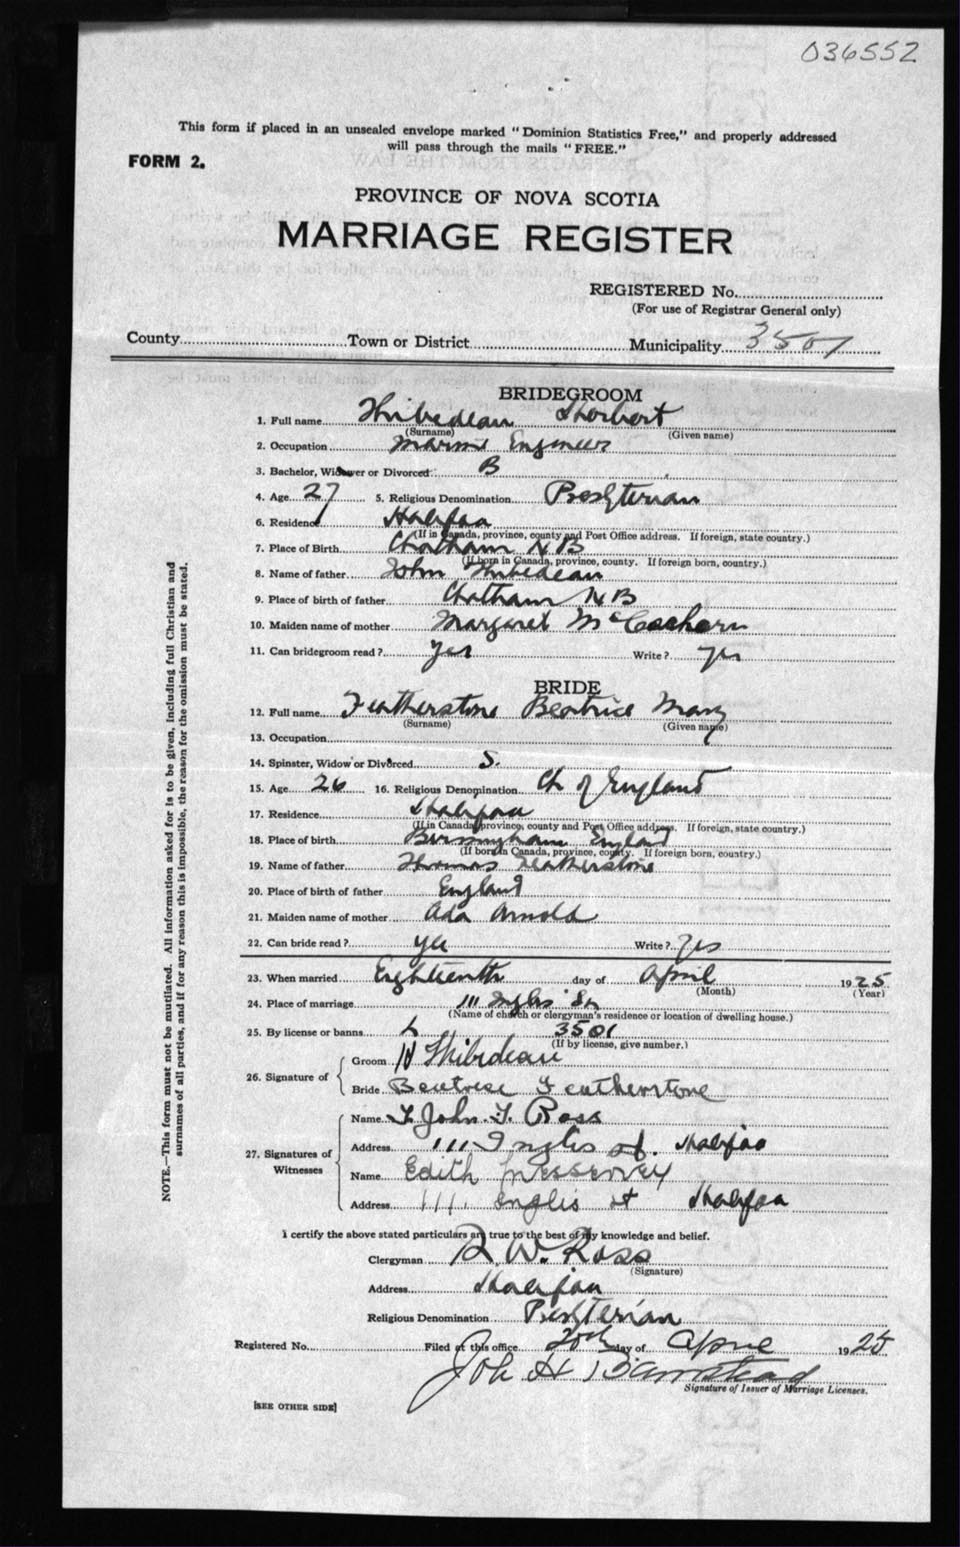 036552
This form if placed in an unsealed envelope marked "Dominion Statistics Free," and properly addressed
will pass through the mails "FREE."
FORM 2.
PROVINCE OF NOVA SCOTIA
MARRIAGE REGISTER
REGISTERED No.
(For use of Registrar General only)
County Town or District Municipality 3501
BRIDEGROOM
1. Full name Thibedeau Herbert
(Surname) (Given name)
2. Occupation Marine Engineer
3. Bachelor, Widower or Divorced B
4. Age 27 5. Religious Denomination Presbyterian
6. Residence Halifax
(If in Canada, province, county and Post Office address. If foreign, state country.)
7. Place of Birth Chatham N B
(If born in Canada, province, county. If foreign born, country.)
8. Name of father John Thibedeau
9. Place of birth of father Chatham N B
10. Maiden name of mother Margaret McEachern
11. Can bridegroom read? yes Write? yes
BRIDE
12. Full name Featherstone Beatrice Mary
(Surname) (Given name)
13. Occupation
14. Spinster, Widow or Divorced S.
15. Age 26 16. Religious Denomination Ch of England
17. Residence Halifax
(If in Canada, province, county and Post Office address. If foreign, state country.)
18. Place of birth Birmingham England
(If born in Canada, province, county. If foreign born, country.)
19. Name of father Thomas Featherstone
20. Place of birth of father England
21. Maiden name of mother Ada Arnold
22. Can bride read? yes Write? yes
23. When married Eighteenth day of April 1925
(Month) (Year)
24. Place of marriage 111 Inglis St
(Name of church or clergyman's residence or location of dwelling house.)
25. By license or banns L 3501
(If by license, give number.)
26. Signature of
Groom H Thibideau
Bride Beatrice Featherstone
27. Signatures of Witnesses
Name John F. Ross
Address 111 Inglis St. Halifax
Name Edith Messervey
Address 111 Inglis St Halifax
I certify the above stated particulars are true to the best of my knowledge and belief.
Clergyman R. W. Ross
(Signature)
Address Halifax
Religious Denomination Presbyterian
Registered No. Filed at this office 20th day of April 1925
Joh H Barnstead
Signature of Issuer of Marriage Licenses.
[SEE OTHER SIDE]
NOTE.—This form must not be mutilated. All information asked for is to be given, including full Christian and
surnames of all parties, and if for any reason this is impossible, the reason for the omission must be stated.